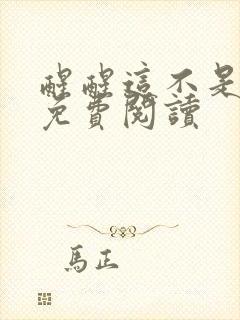 醒醒這不是
免費閱讀
馬正